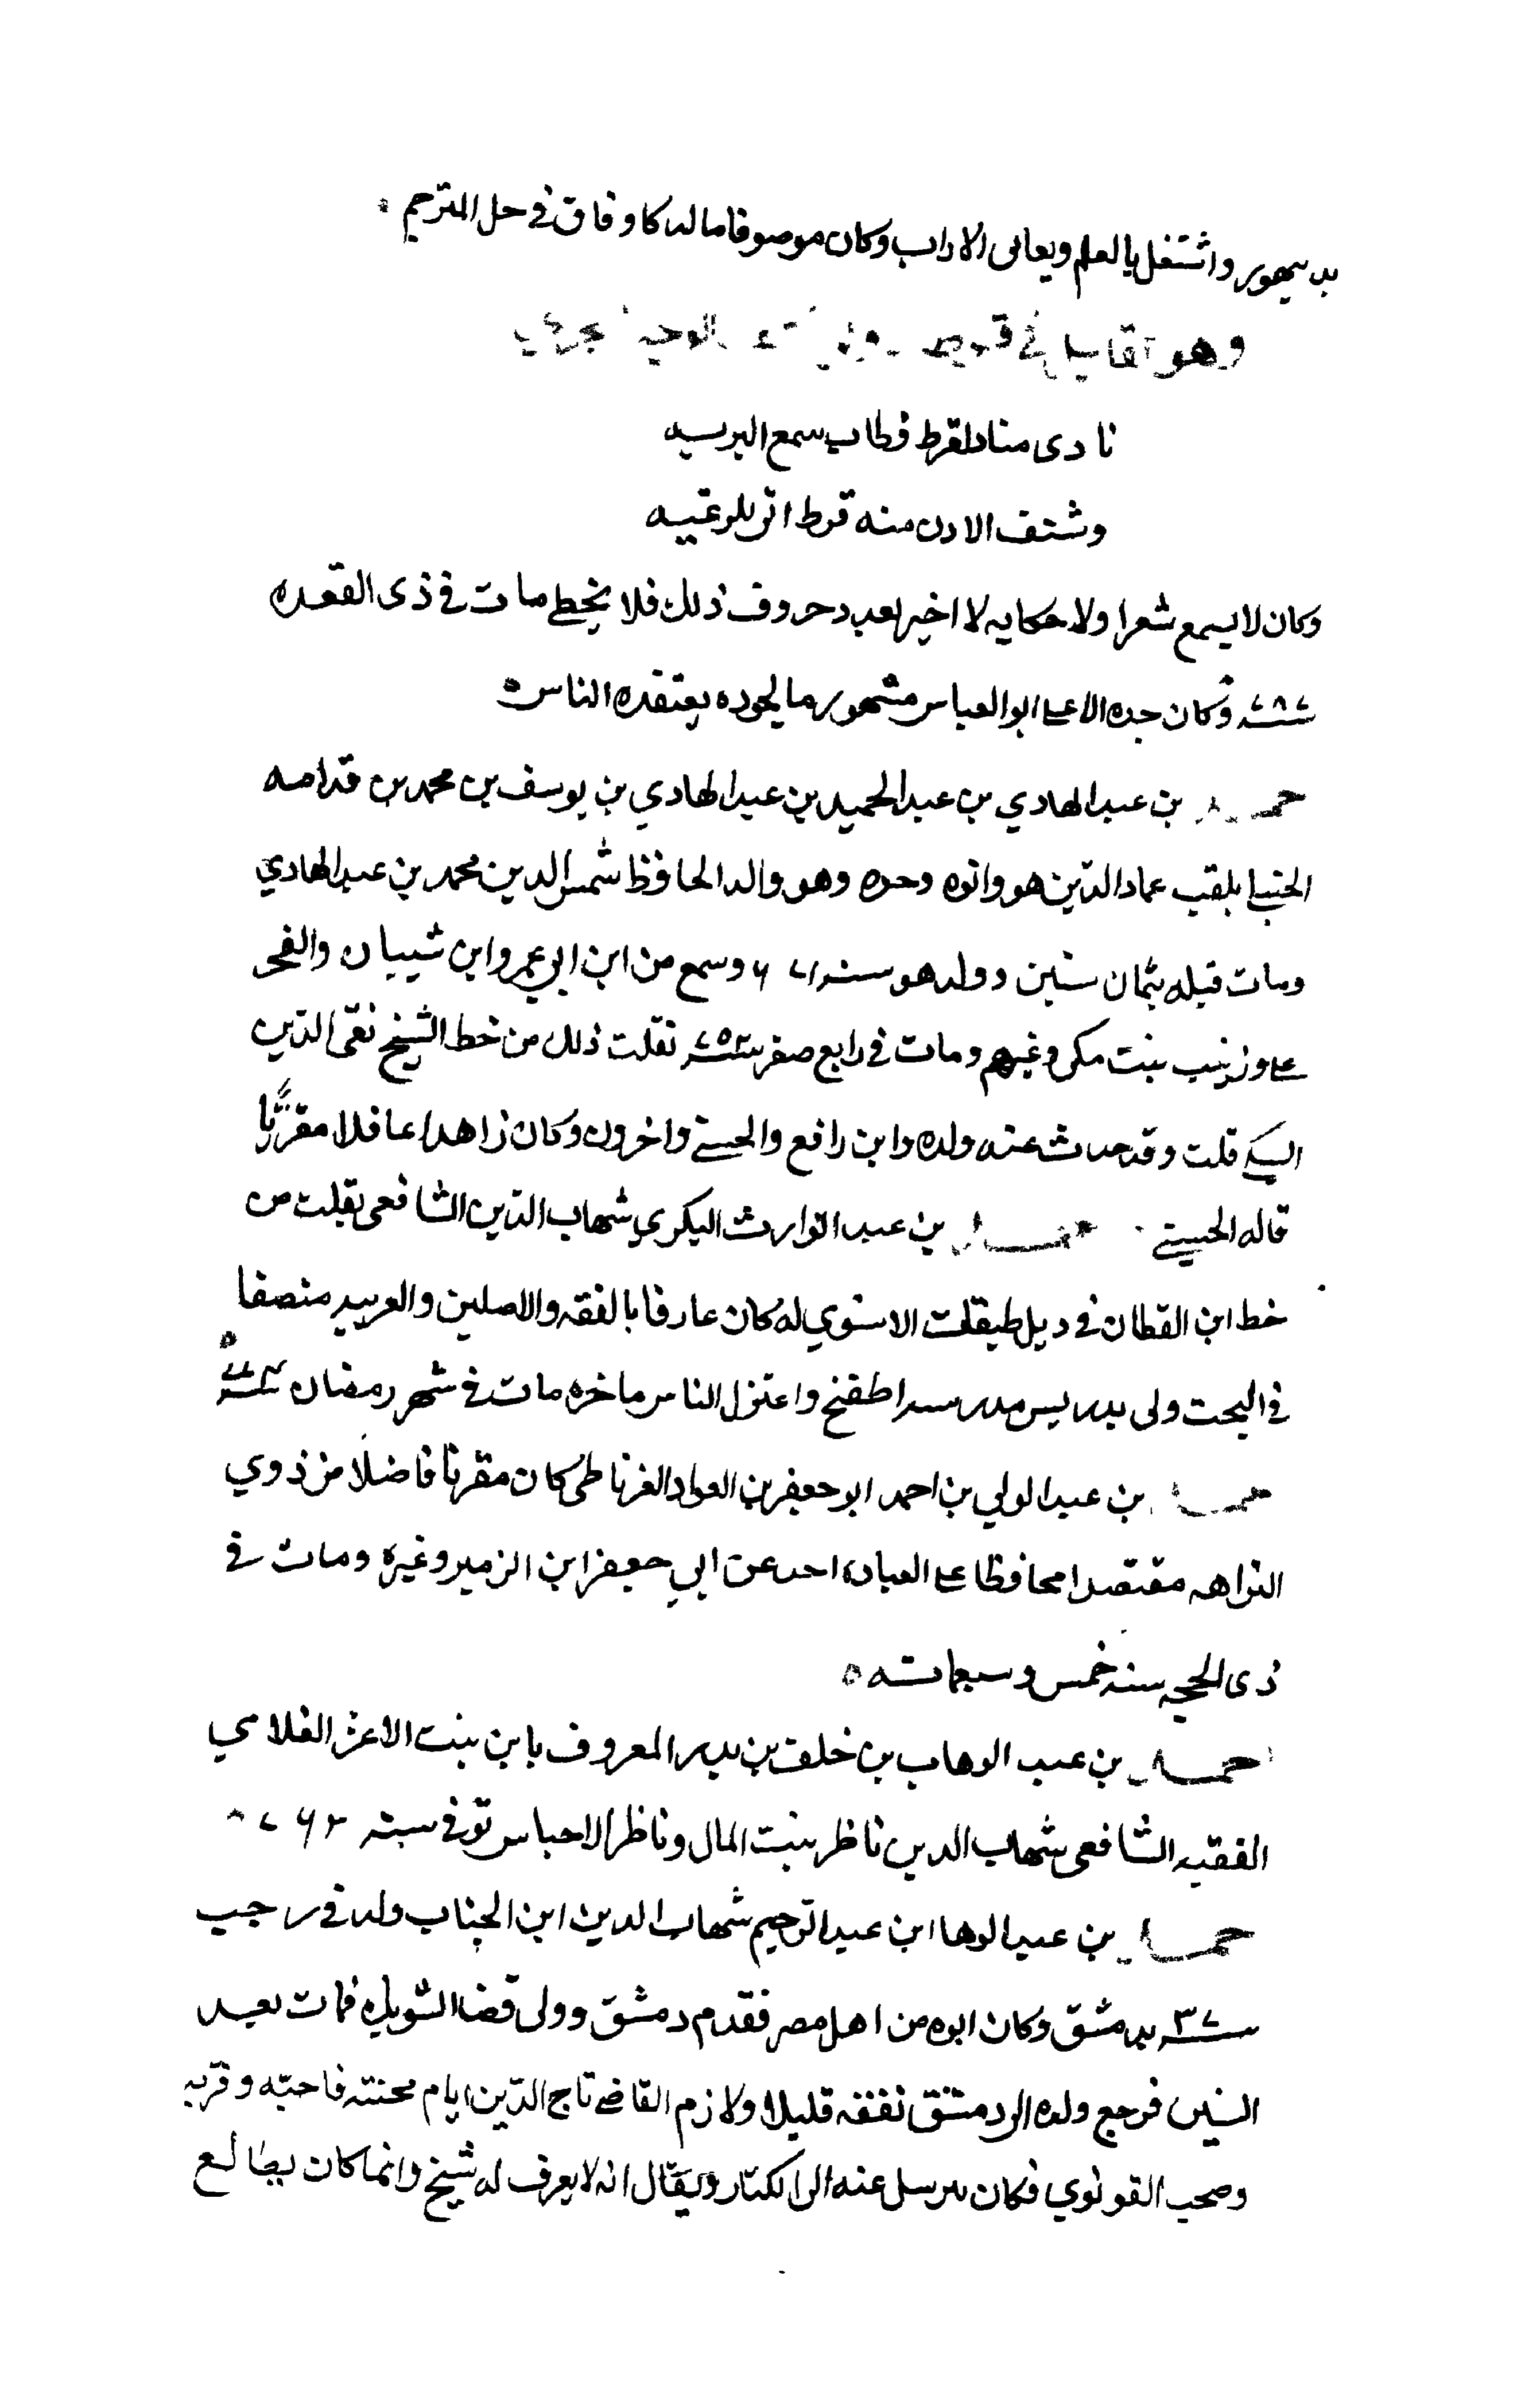 بدمنهور واشتغل بالعلم وتعانى الاداب وكان موصوفا مالدكا وفاق في حل المترجم
وهو القايل في
نادى مناد لقرط فطاب سمع البريه
وشنف الاذن منه قرط اتى للرعيه
وكان لا يسمع شعرا ولا حكايه الا اخبر بعدد حروف ذلك فلا يخطي مات في ذى القعده
سنة ٧٨٧ وكان جده الاعلى ابو العباس مشهورا يعتقده الناس
احمد بن عبد الهادي بن عبد الحميد بن عبد الهادي بن يوسف بن محمد بن قدامه
الحنبلي يلقب عماد الدين هو وابوه وجده وهو والد الحافظ شمس الدين محمد بن عبد الهادي
ومات قبله بثمان سنين وولد هو سنة ٦٧١ وسمع من ابن ابي عمر وابن شيبان والفخر
علي وزينب بنت مكي وغيرهم ومات في رابع صفر سنة ٧٥٢ نقلت ذلك من خط الشيخ تقى الدين
السبكي قلت وقد حدث عنه ولده وابن رافع والحسيني واخرون وكان زاهدا عاقلا مقرئا
قاله الحسيني احمد بن عبد الوارث البكري شهاب الدين الشافعي نقلت من
خط ابن القطان في ذيل طبقات الاسنوي له كان عارفا بالفقه والاصلين والعربيه منصفا
في البحث ولى تدريس مدرسه اطفيح واعتزل الناس باخره مات في شهر رمضان
احمد بن عبد الولي بن احمد ابو جعفر بن العواد الغرناطى كان مقرئا فاضلا من ذوي
النزاهه مقتصدا محافظا على العباده اخذ عن ابي جعفر ابن الزبير وغيره ومات في
ذى الحجه سنه خمس وسبعمائه
احمد بن عبد الوهاب بن خلف بن بدر المعروف بابن بنت الاعز العلامي
الفقيه الشافعى شهاب الدين ناظر بيت المال وناظر الاحباس توفي سنة
احمد بن عبد الوها ابن عبد الرحيم شهاب الدين ابن الجباب ولد في رجب
بدمشق وكان ابوه من اهل مصر فقدم دمشق وولى قضا الشوبك فمات بعيد
السنين فرجع ولده الى دمشق تفقه قليلا ولازم القاضي تاج الدين ايام محنته فاحبه وقربه
وصحب القونوي فكان يرسل عنه الى الكبار ويقال انه لا يعرف له شيخ وانما كان يطالع